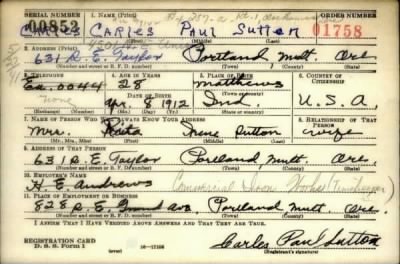 SERIAL NUMBER 1. NAME (Print) ORDER NUMBER
00853 CARLES CARLES Paul Sutton 01758
(First) (Middle) (Last)
2. ADDRESS (Print)
631 S. E. Taylor Portland Mult. Ore.
(Number and street or R. F. D. number) (Town) (County) (State)
3. TELEPHONE 4. AGE IN YEARS 5. PLACE OF BIRTH 6. COUNTRY OF CITIZENSHIP
Ea 0044 28 Matthews
none DATE OF BIRTH
Apr. 8 1912 Ind. U.S.A.
(Exchange) (Number) (Mo.) (Day) (Yr.) (State or country)
7. NAME OF PERSON WHO WILL ALWAYS KNOW YOUR ADDRESS 8. RELATIONSHIP OF THAT PERSON
Mrs. Rita Irene Sutton wife
(Mr., Mrs., Miss) (First) (Middle) (Last)
9. ADDRESS OF THAT PERSON
631 S. E. Taylor Portland Mult. Ore.
(Number and street or R. F. D. number) (Town) (County) (State)
10. EMPLOYER'S NAME
H E. Andrews Commercial Iron Works
11. PLACE OF EMPLOYMENT OR BUSINESS
828 S. E. Grand Ave Portland Mult. Ore.
(Number and street or R. F. D. number) (Town) (County) (State)
I AFFIRM THAT I HAVE VERIFIED ABOVE ANSWERS AND THAT THEY ARE TRUE.
REGISTRATION CARD
D. S. S. Form 1 16—17105 Carles Paul Sutton
(Registrant's signature)